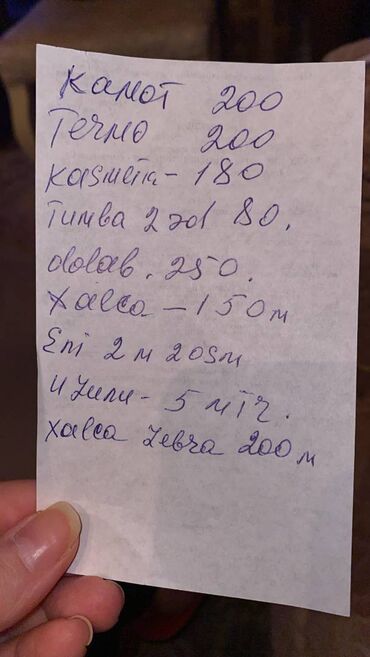 Камот 200
Течмо 200
Kasmetia - 180
Tumba 2 əd 80.
dolab. 250.
Xalca - 150 м
Eni 2 м 20 sм
Uzunu - 5 мiтг.
Xalca Zebra 200 м